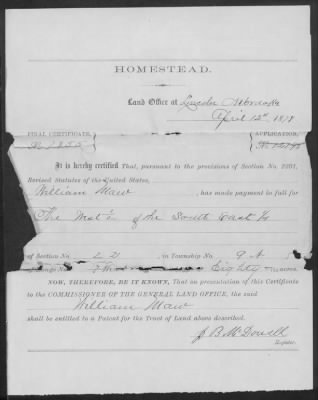 HOMESTEAD.
Land Office at Lincoln Nebraska
April 12th 187
FINAL CERTIFICATE, APPLICATION,
No
It is hereby certified That, pursuant to the provisions of Section No. 2291,
Revised Statutes of the United States,
William Maw , has made payment in full for
The West ½ of the South East ¼
of Section No. 22 , in Township No. 9 N
Range No. Eighty acres.
NOW, THEREFORE, BE IT KNOWN, That on presentation of this Certificate
to the COMMISSIONER OF THE GENERAL LAND OFFICE, the said
William Maw
shall be entitled to a Patent for the Tract of Land above described.
J B McDowell
Register.